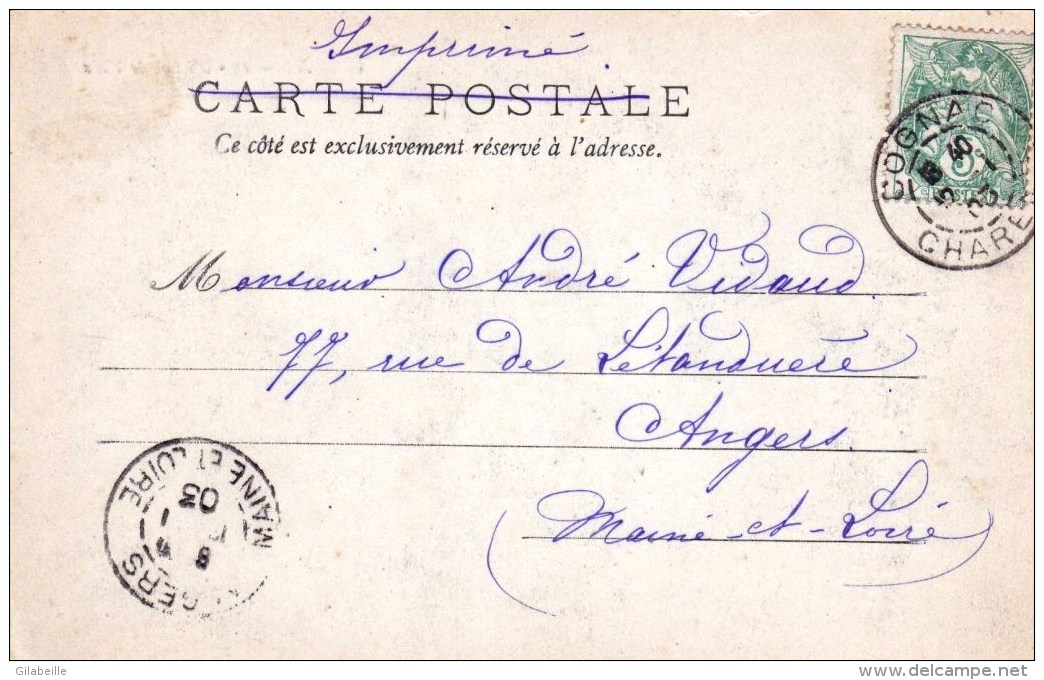 Imprimé
CARTE POSTALE
Ce côté est exclusivement réservé à l'adresse.
COGNAC
CHARE
Monsieur André Vidaud
77, rue de Létanduère
Angers
(Maine-et-Loire)
MAINE ET LOIRE
03
GERS
Gilabeille
delcampe.net